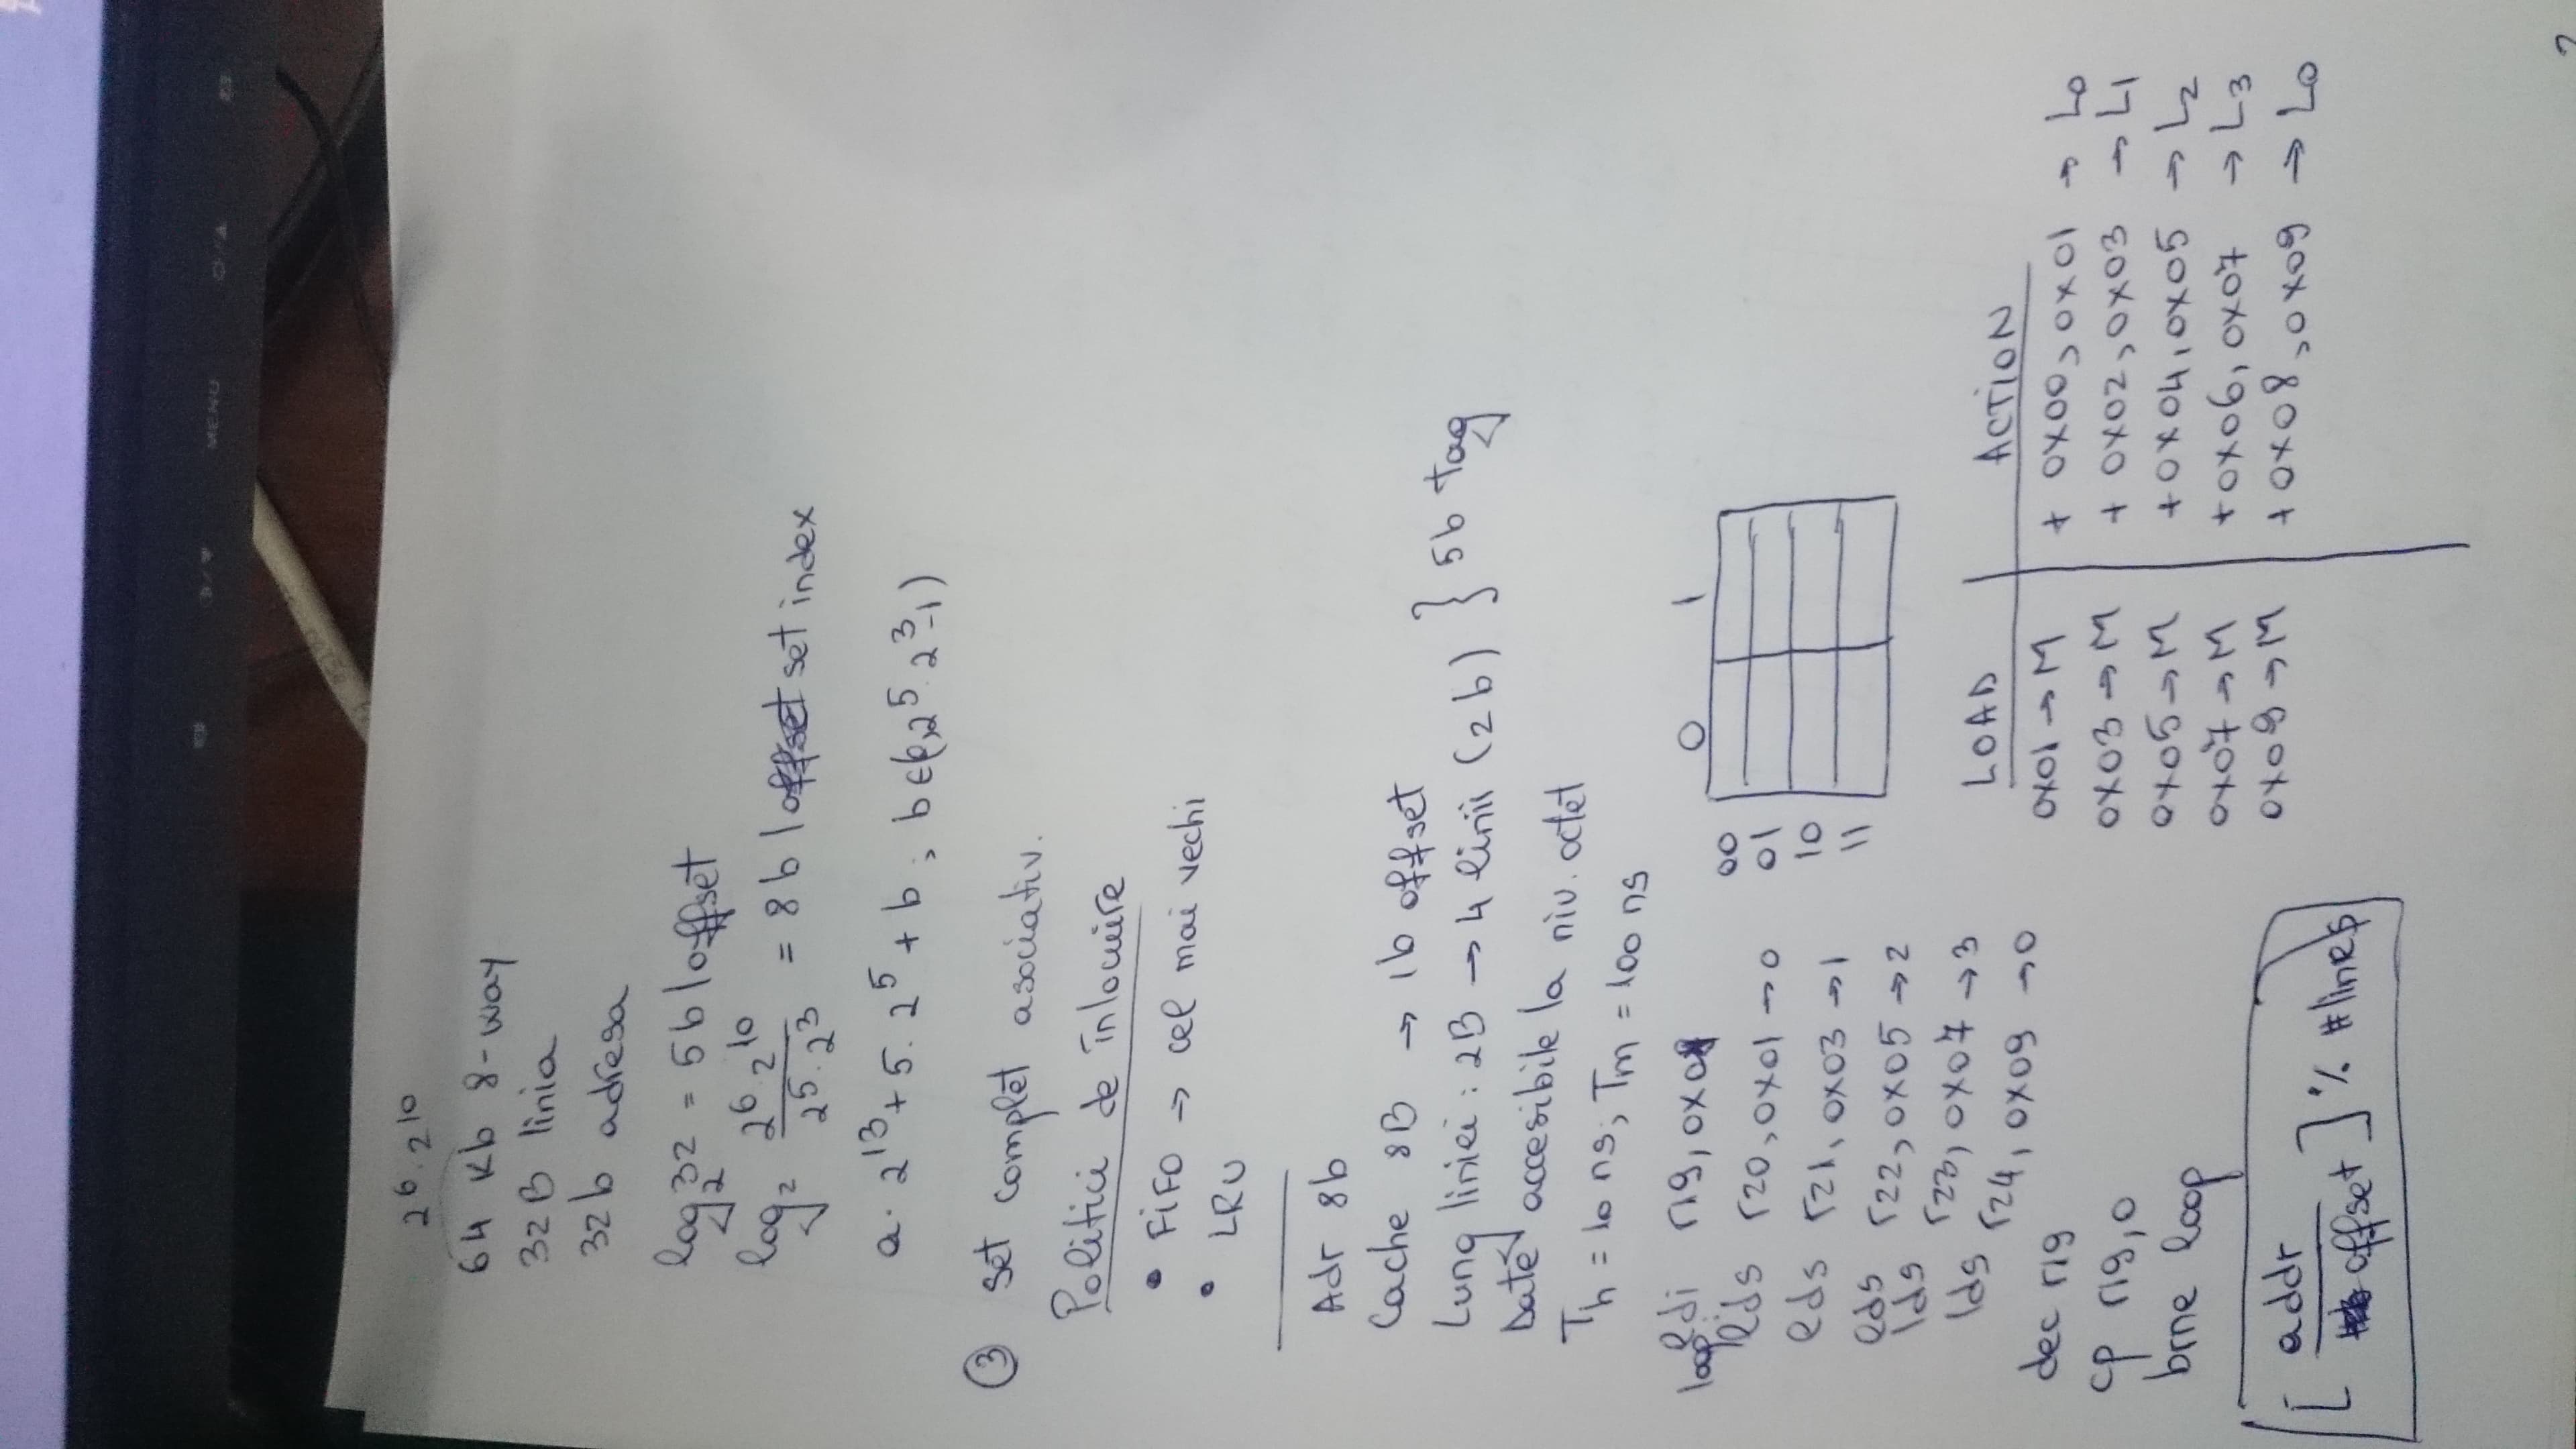 MENU
2^6 · 2^10
64 Kb 8-way
32B linia
32b adresa
log_2 32 = 5b | offset
log_2 (2^6 · 2^10) / (2^5 · 2^3) = 8b | set index
a · 2^13 + 5 · 2^5 + b ; b ∈ (0, 2^5 · 2^3 -1)
③ set complet asociativ.
Politici de înlocuire
• FiFO → cel mai vechi
• LRU
Adr 8b
Cache 8B → 1b offset
Lung liniei : 2B → 4 linii (2b) } 5b tag
Date accesibile la niv. octet
Th = 10 ns; Tm = 100 ns
ldi r19, 0x0
loop:
lds r20, 0x01 → 0
lds r21, 0x03 → 1
lds r22, 0x05 → 2
lds r23, 0x07 → 3
lds r24, 0x09 → 0
dec r19
cp r19, 0
brne loop
[ addr / offset ] % #lines
0 1
00
01
10
11
LOAD | ACTiON
0x01 → M | + 0x00, 0x01 → L0
0x03 → M | + 0x02, 0x03 → L1
0x05 → M | + 0x04, 0x05 → L2
0x07 → M | + 0x06, 0x07 → L3
0x09 → M | + 0x08, 0x09 → L0